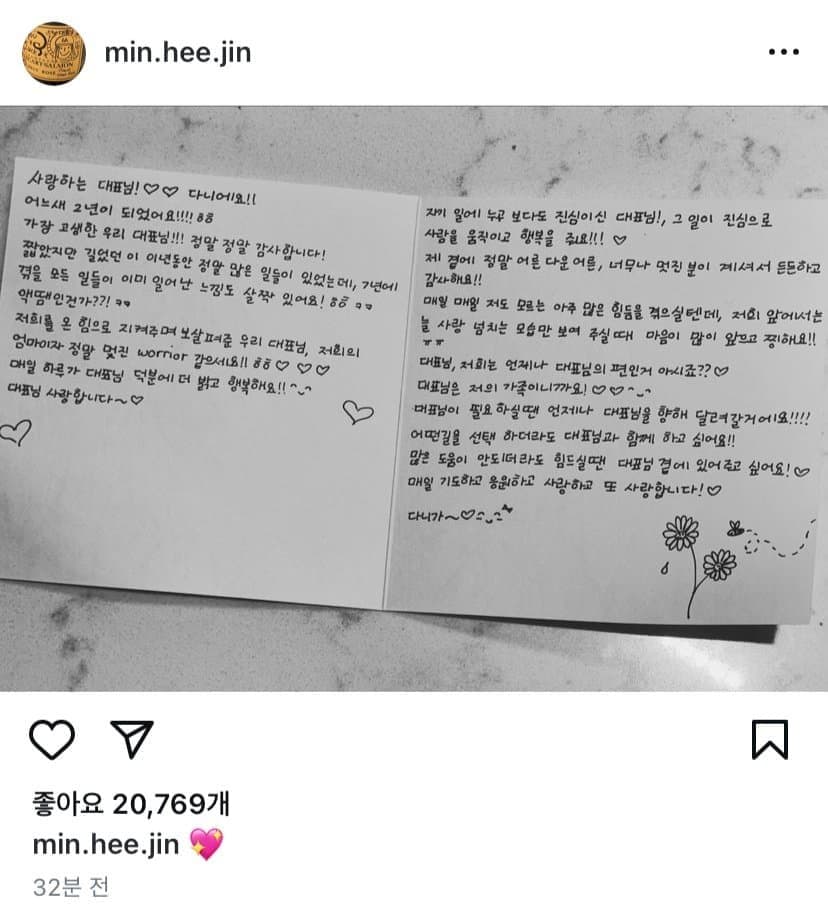 min.hee.jin
사랑하는 대표님!♡♡ 다니에요!!
어느새 2년이 되었어요!!!! ㅎㅎ
가장 고생한 우리 대표님!!! 정말 정말 감사합니다!
짧았지만 길었던 이 이년동안 정말 많은 일들이 있었는데, 7년에
겪을 모든 일들이 이미 일어난 느낌도 살짝 있어요! ㅎㅎ ㅋㅋ
액땜인건가??! ㅋㅋ
저희를 온 힘으로 지켜주며 보살펴준 우리 대표님, 저희의
엄마이자 정말 멋진 worrior 같으세요!! ㅎㅎ ♡ ♡ ♡
매일 하루가 대표님 덕분에 더 밝고 행복해요!! ^ᴗ^
대표님 사랑합니다~♡
자기 일에 누구 보다도 진심이신 대표님!, 그 일이 진심으로
사람을 움직이고 행복을 줘요!!! ♡
제 곁에 정말 어른 다운 어른, 너무나 멋진 분이 계셔서 든든하고
감사해요!!
매일 매일 저도 모르는 아주 많은 힘듬을 겪으실텐데, 저희 앞에서는
늘 사랑 넘치는 모습만 보여 주실때 마음이 많이 아프고 찡해요!!
ㅠㅠ
대표님, 저희는 언제나 대표님의 편인거 아시죠??♡
대표님은 저의 가족이니까요!♡♡^ᴗ^
대표님이 필요하실땐 언제나 대표님을 향해 달려갈거에요!!!!
어떤길을 선택 하더라도 대표님과 함께 하고 싶어요!!
많은 도움이 안되더라도 힘드실땐 대표님 곁에 있어주고 싶어요!♡
매일 기도하고 응원하고 사랑하고 또 사랑합니다!♡
다니가~♡
좋아요 20,769개
min.hee.jin 💖
32분 전